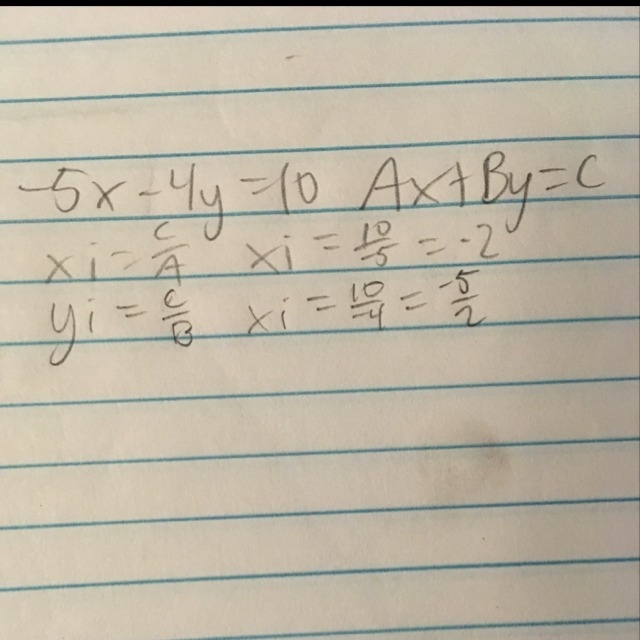 -5x-4y=10 Ax+By=C
xi=C/A xi=10/-5=-2
yi=C/B xi=10/-4=-5/2